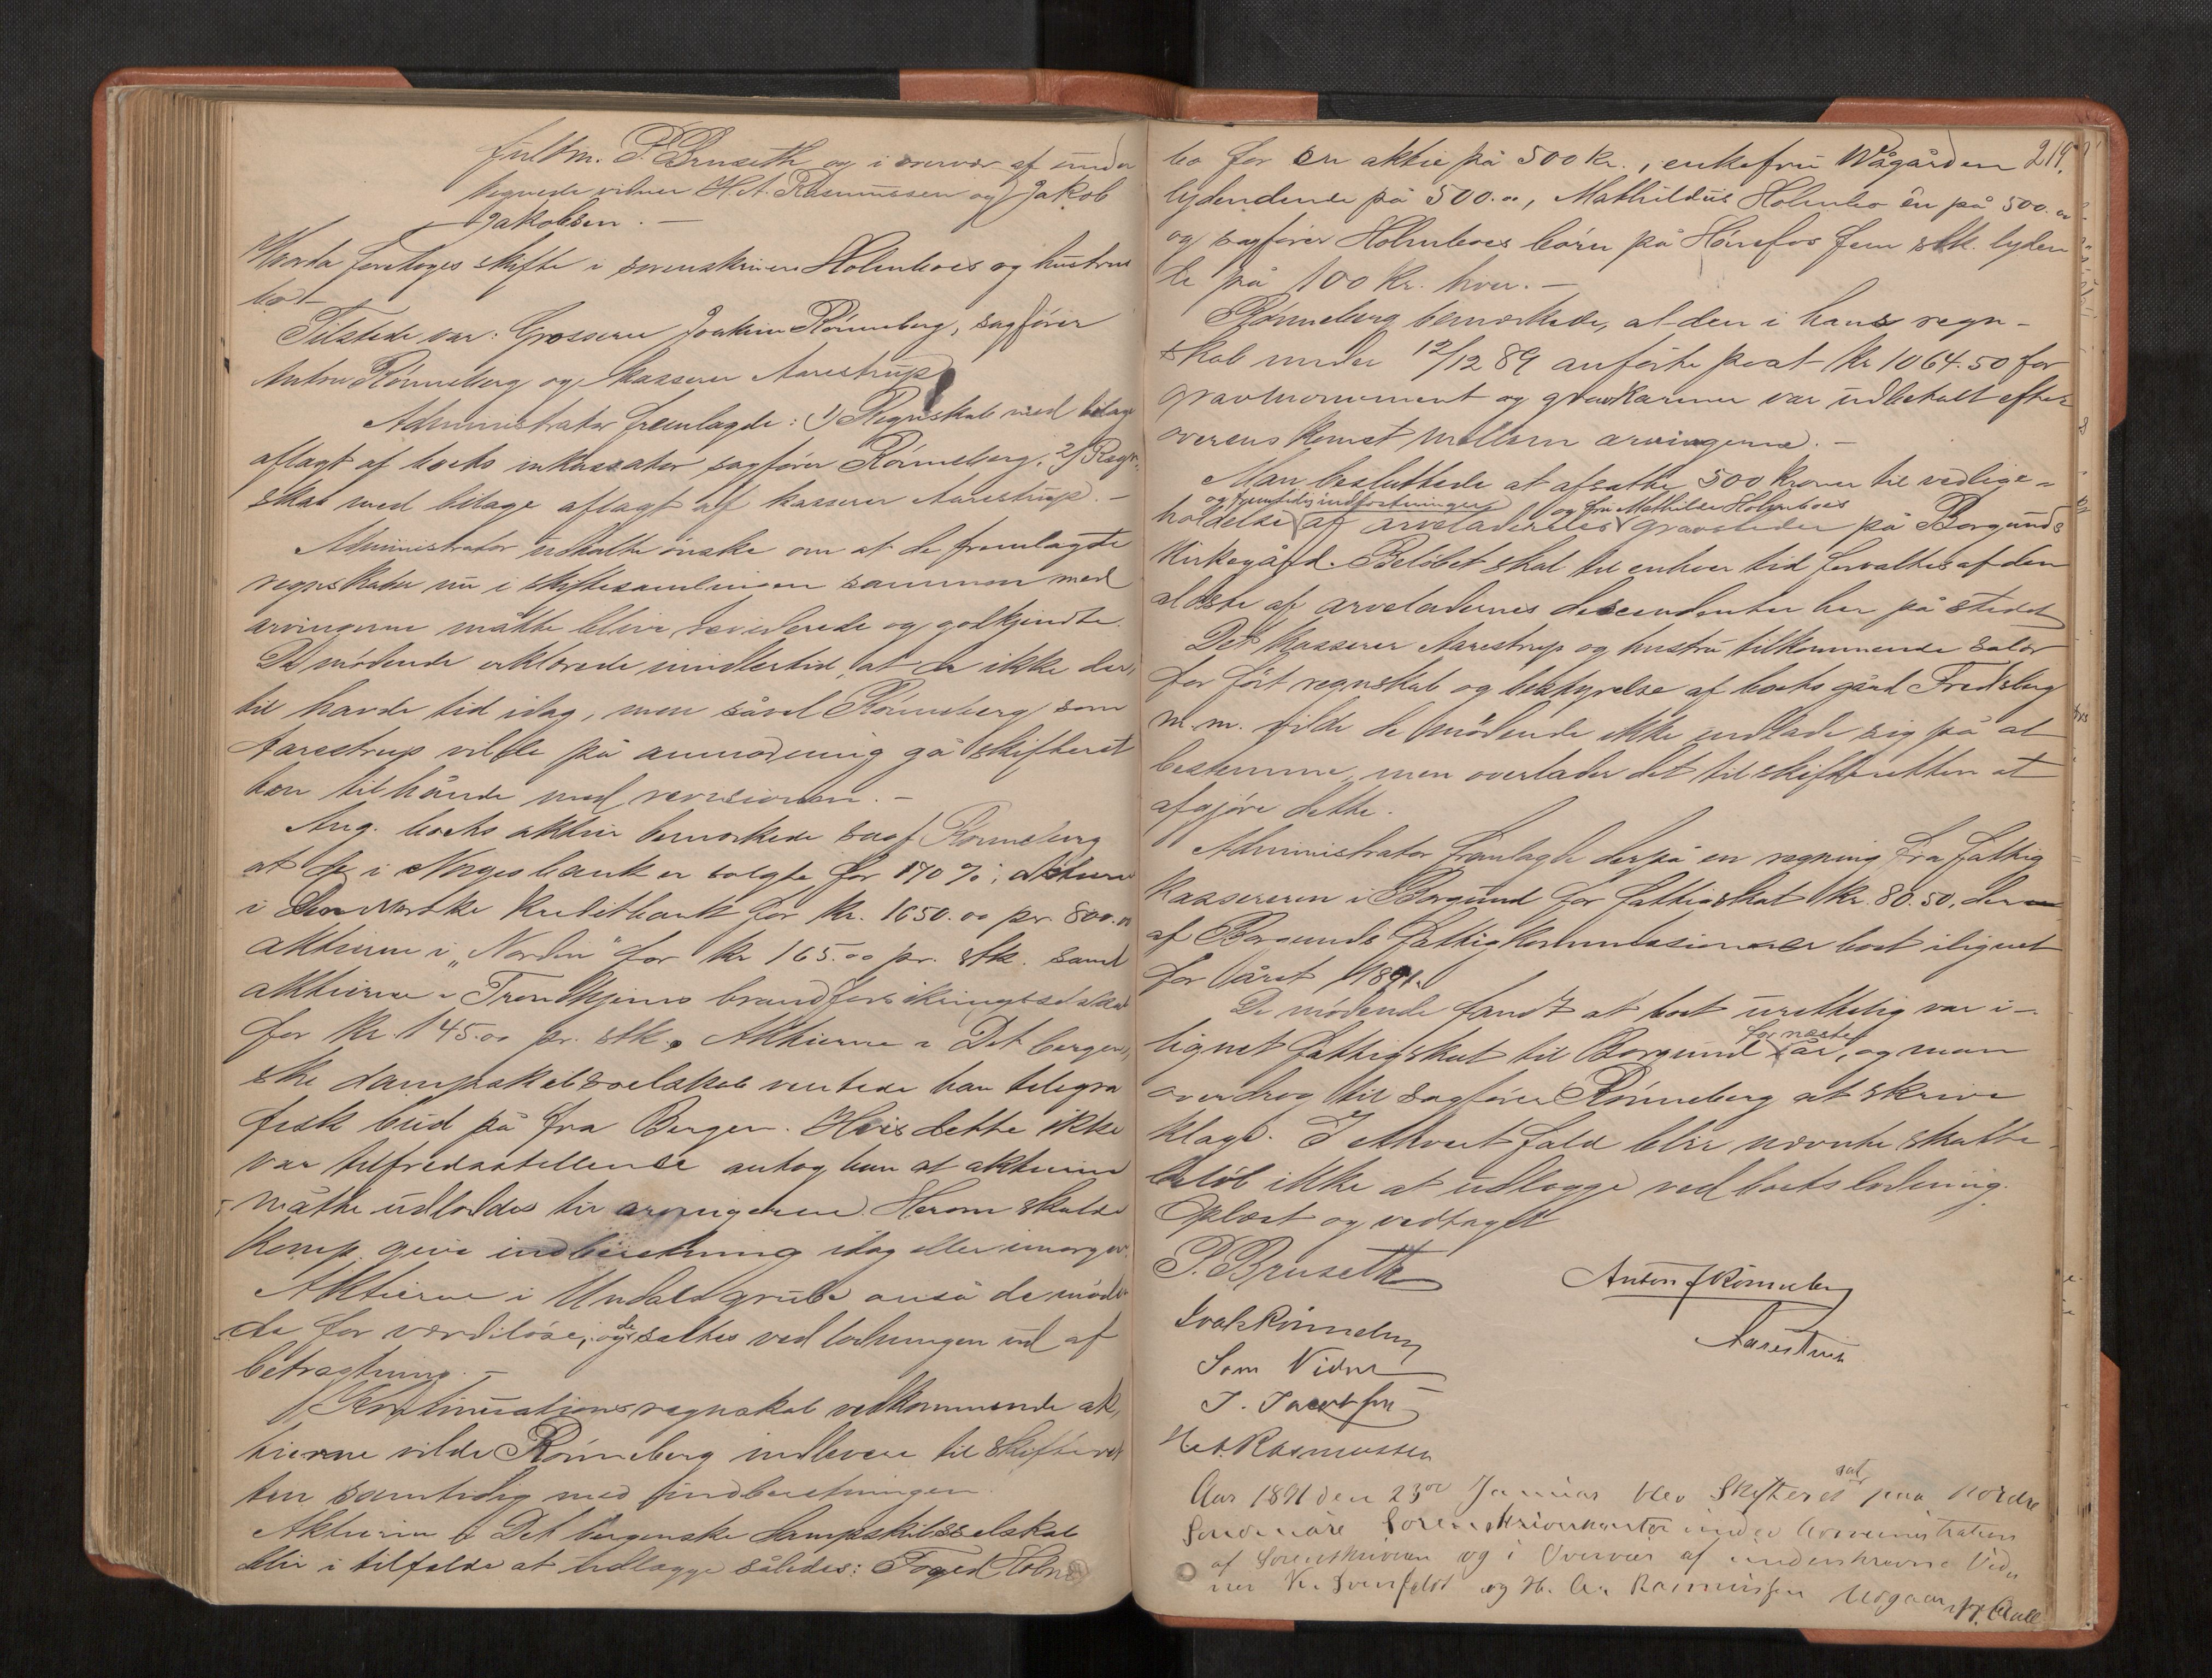 fuldm. P. Bruseth og i overvær af under
tegnede vidner H. A. Rasmussen og Jakob
Jakobsen. —
Hvorda foretoges skifte i sorenskriver Holmboes og hustrus
bo. —
Tilstede var: Grosserer Joakim Rönneberg, sagförer
Anton Rönneberg og kasserer Aarestrup.
Administrator fremlagde: 1) Regnskab med bilage
aflagt af boets inkassator sagförer Rönneberg, 2) Regn-
skab med bilage aflagt af kasserer Aarestrup. —
Administrator udtalte önske om at de fremlagte
regnskaber nu i skiftesamlingen sammen med
arvingerne måtte blive reviderede og godkjendte.
De mödende erklærede imidlertid, at de ikke der-
til havde tid idag, men såvel Rönneberg som
Aarestrup vilde på anmodning gå skifteret
ten tilhånde med revisionen. —
Ang. boets aktier bemærkede sagf. Rönneberg
at de i Norges bank er solgte for 170 %, aktierne
i Den Norske Kreditbank for kr. 1650.00 pr. 800.00
aktierne i "Norden" for kr 165.00 pr. stk. samt
aktierne i Trondhjems brandforsikringsselskab
for kr. 145.00 pr. stk. Aktierne i Det bergen-
ske dampskibsselskab ventede han telegra
fisk bud på fra Bergen. Hvis dette ikke
var tilfredsstillende antog han at aktierne
måtte udloddes til arvingerne. Herom skulde
komp. give indberetning idag eller imorgen.
Aktierne i Undals grube anså de möden
de for værdilöse, og de sattes ved lodningen ud af
betragtning. —
Kontinuationsregnskab vedkommende ak-
tierne vilde Rönneberg indlevere til skifteret
ten samtidig med indberetningen.
Aktierne i Det bergenske dampskibsselskab
blir i tilfælde at udlægge således: Foged Holm
219.
bo for en aktie på 500 kr., enkefru Wågården
lydendende på 500.00, Mathildus Holmbo en på 500.00
og sagförer Holmboes börn på Hönefos fem stk. lyden
de på 100 kr. hver. —
Rönneberg bemærkede, at den i hans regn-
skab under 12/12 89 anförte post kr 1064.50 for
gravmonument og gravkarmer var udbetalt efter
overenskomst mellem arvingerne. —
Man besluttede at afsætte 500 kroner til vedlige-
og fremtidig indfæstninger og fru Mathilde Holmboes
holdelse af arveladernes gravsteder på Borgunds
Kirkegård. Belöbet skal til enhver tid forvaltes af den
ældste af arveladernes descendenter her på stedet
Det kasserer Aarestrup og hustru tilkommende salær
for fört regnskab og bestyrelse af boets gård Fredsberg
m.m. vilde de mödende ikke indlade sig på at
bestemme, men overlader det til skifteretten at
afgjöre dette.
Administrator fremlagde derpå en regning fra fattig
kassereren i Borgund for fattigskat kr. 80.50, der
af Borgunds fattigkommission er boet ilignet
for året 1891.
De mödende fandt at boet urettelig var i-
for næste
lignet fattigskat til Borgund år, og man
overdrog til sagförer Rönneberg at skrive
klage. I ethvert fald blir nævnte skatte
belöb ikke at udlægge ved boets lodning.
Oplæst og vedtaget
P. Bruseth
Anton Rönneberg
Joak Rönneberg
Aarestrup
Som Vidne
J. Jacobsen
H. A. Rasmussen
Aar 1891 den 23de Januar blev Skifteret sat paa Nordre
Söndmöre Sorenskriverkontor under Administration
af Sorenskriveren og i Overvær af underskrevne Vid-
ner og H. A. Rasmussen